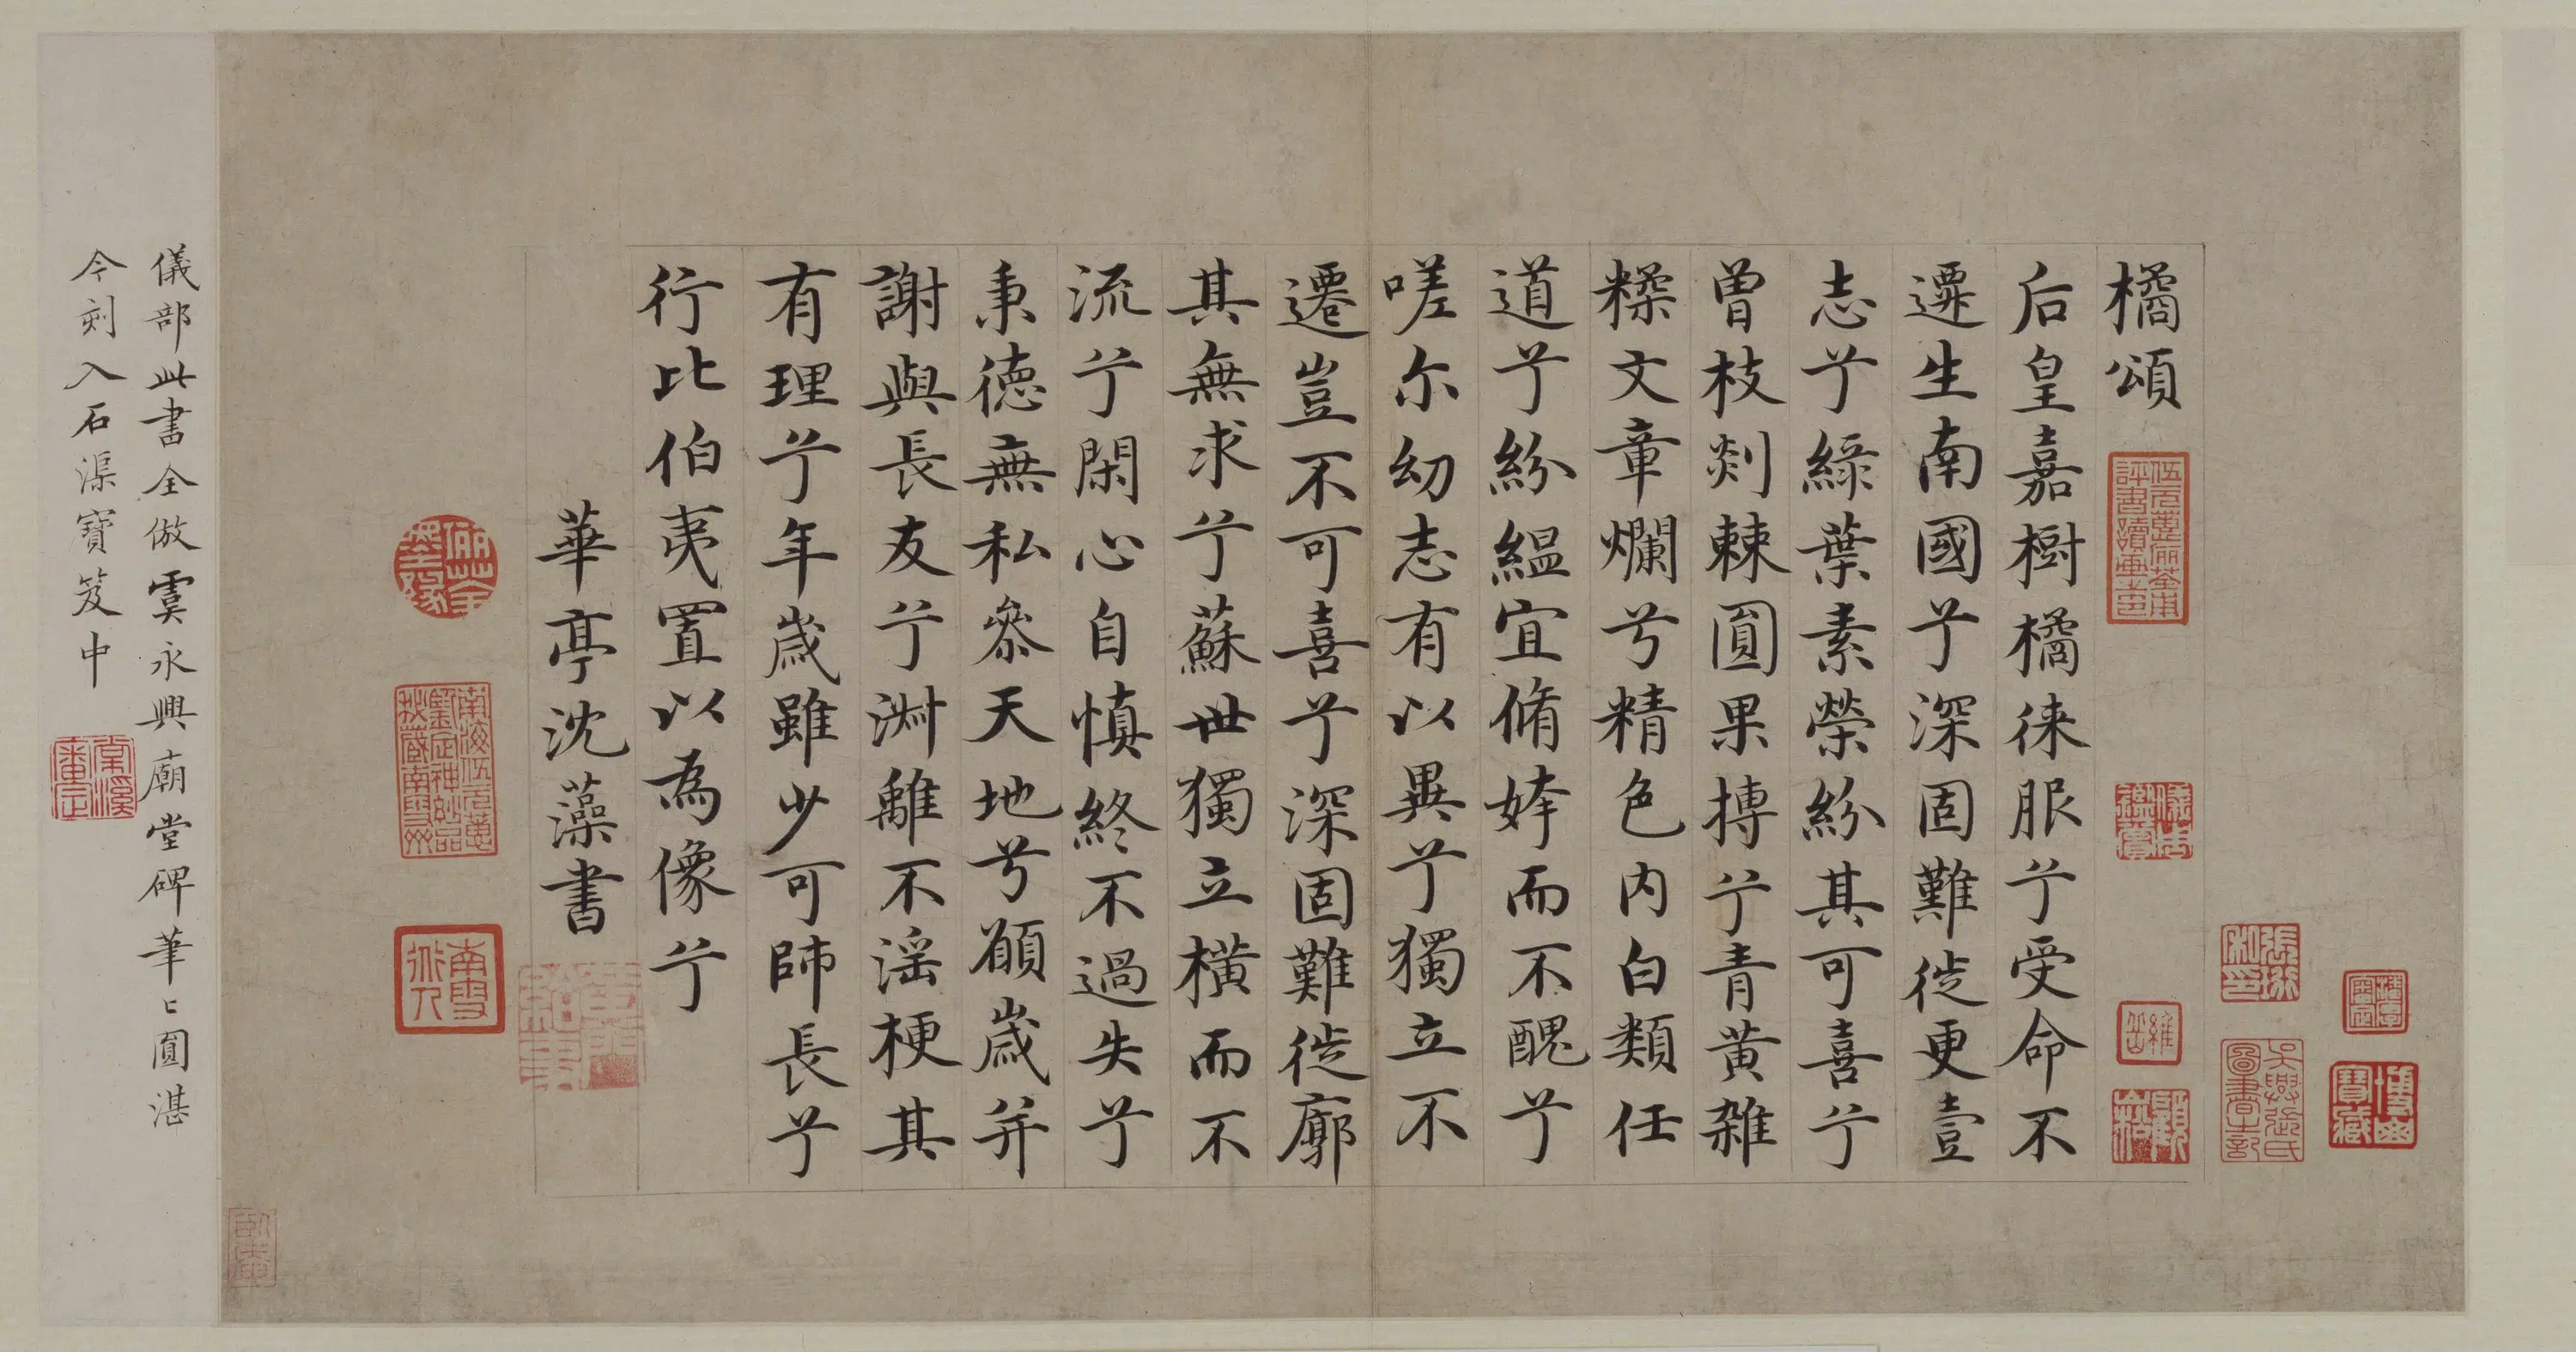 橘頌
后皇嘉樹橘徠服兮受命不
遷生南國兮深固難徙更壹
志兮綠葉素榮紛其可喜兮
曾枝剡棘圓果摶兮青黃雜
糅文章爛兮精色内白類任
道兮紛緼宜脩姱而不醜兮
嗟尔幼志有以異兮獨立不
遷豈不可喜兮深固難徙廓
其無求兮蘇世獨立橫而不
流兮閑心自慎終不過失兮
秉德無私叅天地兮願歲并
謝與長友兮淵離不滛梗其
有理兮年歲雖少可師長兮
行比伯夷置以為像兮
華亭沈藻書
儀部此書全倣虞永興廟堂碑筆〻圓湛
今刻入石渠寶笈中